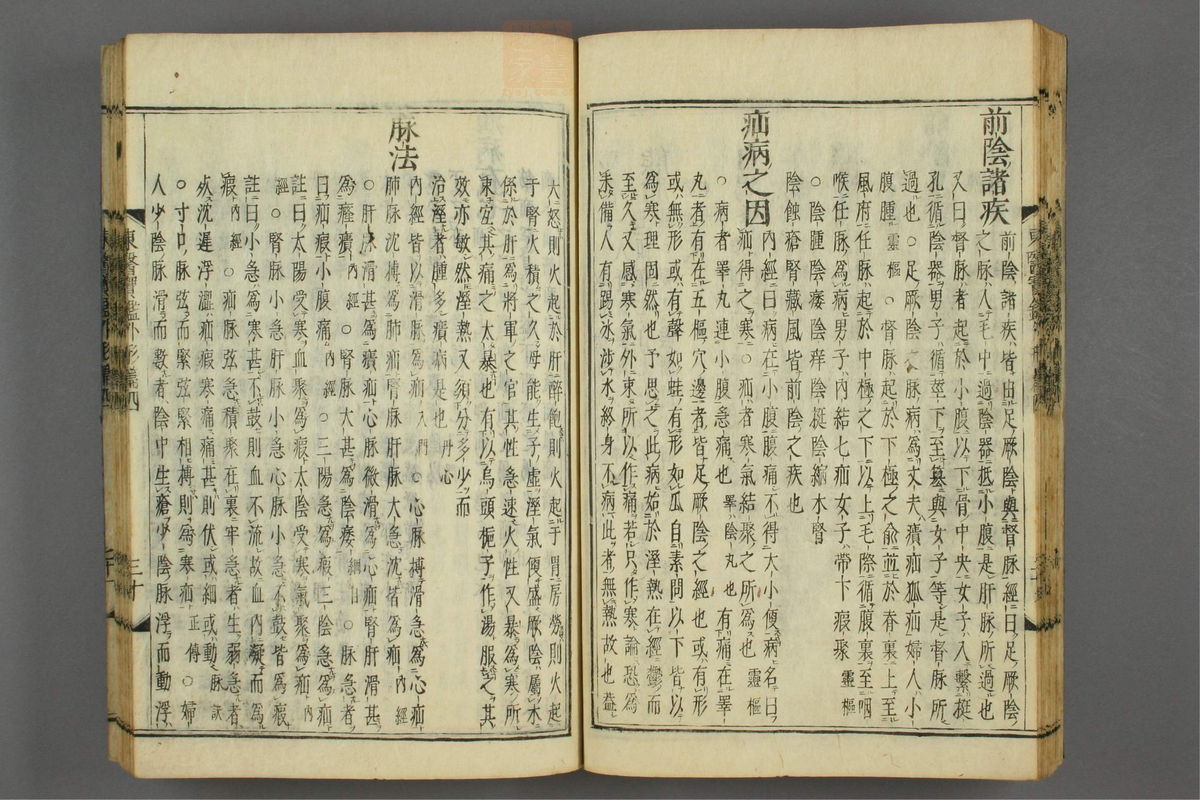 前陰諸疾
前陰諸疾皆出足厥陰與督脈經曰足厥陰
之脈入毛中過陰器抵小腹是肝脈所過也
又曰督脈者起於小腹以下骨中央女子入繫挺
孔循陰器男子循莖下至篡與女子等是督脈所
過也○足厥陰之脈病為丈夫㿉疝狐疝婦人小
腹腫靈樞○督脈起於下極之俞並於脊裏上至
風府任脈起於中極之下以上毛際循腹裏上至咽
喉任脈為病男子內結七疝女子帶下瘕聚靈樞
○陰腫陰痿陰痒陰挺陰縮木腎
陰蝕瘡腎藏風皆前陰之疾也
疝病之因
內經曰病在小腹腹痛不得大小便病名曰
疝得之寒○疝者寒氣結聚之所為也靈樞
○病者睪丸連小腹急痛也睪陰丸也有痛在睪
丸者有在五樞穴邊者皆足厥陰之經也或有形
或無形或有聲如蛙有形如瓜自素問以下皆以
為寒理固然也予思之此病始於溼熱在經鬱而
至久又感寒氣外束所以作痛若只作寒論恐為
未備人有踢冰涉水終身不病此者無熱故也蓋
大怒則火起於肝醉飽則火起于胃房勞則火起
于腎火積之久母能生子虛溼氣便盛厥陰屬木
係於肝為將軍之官其性急速火性又暴為寒所
束宜其痛之太暴也有以烏頭梔子作湯服之其
效亦敏然溼熱又須分多少而
治溼者腫多㿉病是也丹心
脈法
內經皆以滑脈為疝入門○心脈搏滑急為心疝
肺脈沈搏為肺疝腎脈肝脈大急沈皆為疝內經
○肝脈滑甚為㿉疝心脈微滑為心疝腎肝滑甚
為癃㿉內經○腎脈大甚為陰痿綱目○脈急者
曰疝瘕小腹痛內經○三陽急為瘕三陰急為疝
註曰太陽受寒血聚為瘕太陰受寒氣聚為疝內
經○腎脈小急肝脈小急心脈小急不鼓皆為瘕
註曰小急為寒甚不鼓則血不流故血內凝而為
瘕內經○疝脈弦急積聚在裏牢急者生弱急者
死沈遲浮濇疝瘕寒痛痛甚則伏或細或動脈訣
○寸口脈弦而緊弦緊相搏則為寒疝正傳○婦
人少陰脈滑而數者陰中生瘡少陰脈浮而動浮
東醫寶鑑外形篇四
三十